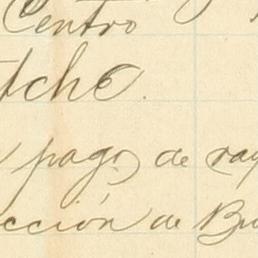 Centro
tche.
pago de ray
cción de Bu